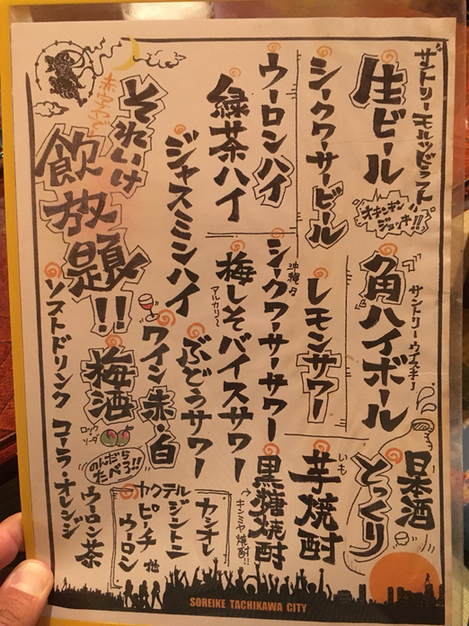 サントリーモルツビーフスト
生ビール
オキンキン
ジョッキ!!
シークワーサービール
ウーロンハイ
緑茶ハイ
ジャスミンハイ
それいけ
飲放題!!
サントリーウヰスキー
角ハイボール
レモンサワー
沖縄タ
シークワーサーサワー
梅しそバイスサワー
アルカリ〜
ぶどうサワー
ワイン赤・白
梅酒
ロック
ソーダ
のんだら
たべろ!!
日本酒
とっくり
いも
芋焼酎
黒糖焼酎
キンミヤ焼酎!!
カクテル
カシオレ
ジントニ
ピーチ
ウーロン
他
ソフトドリンク コーラ・オレンジ
ウーロン茶
SOREIKE TACHIKAWA CITY